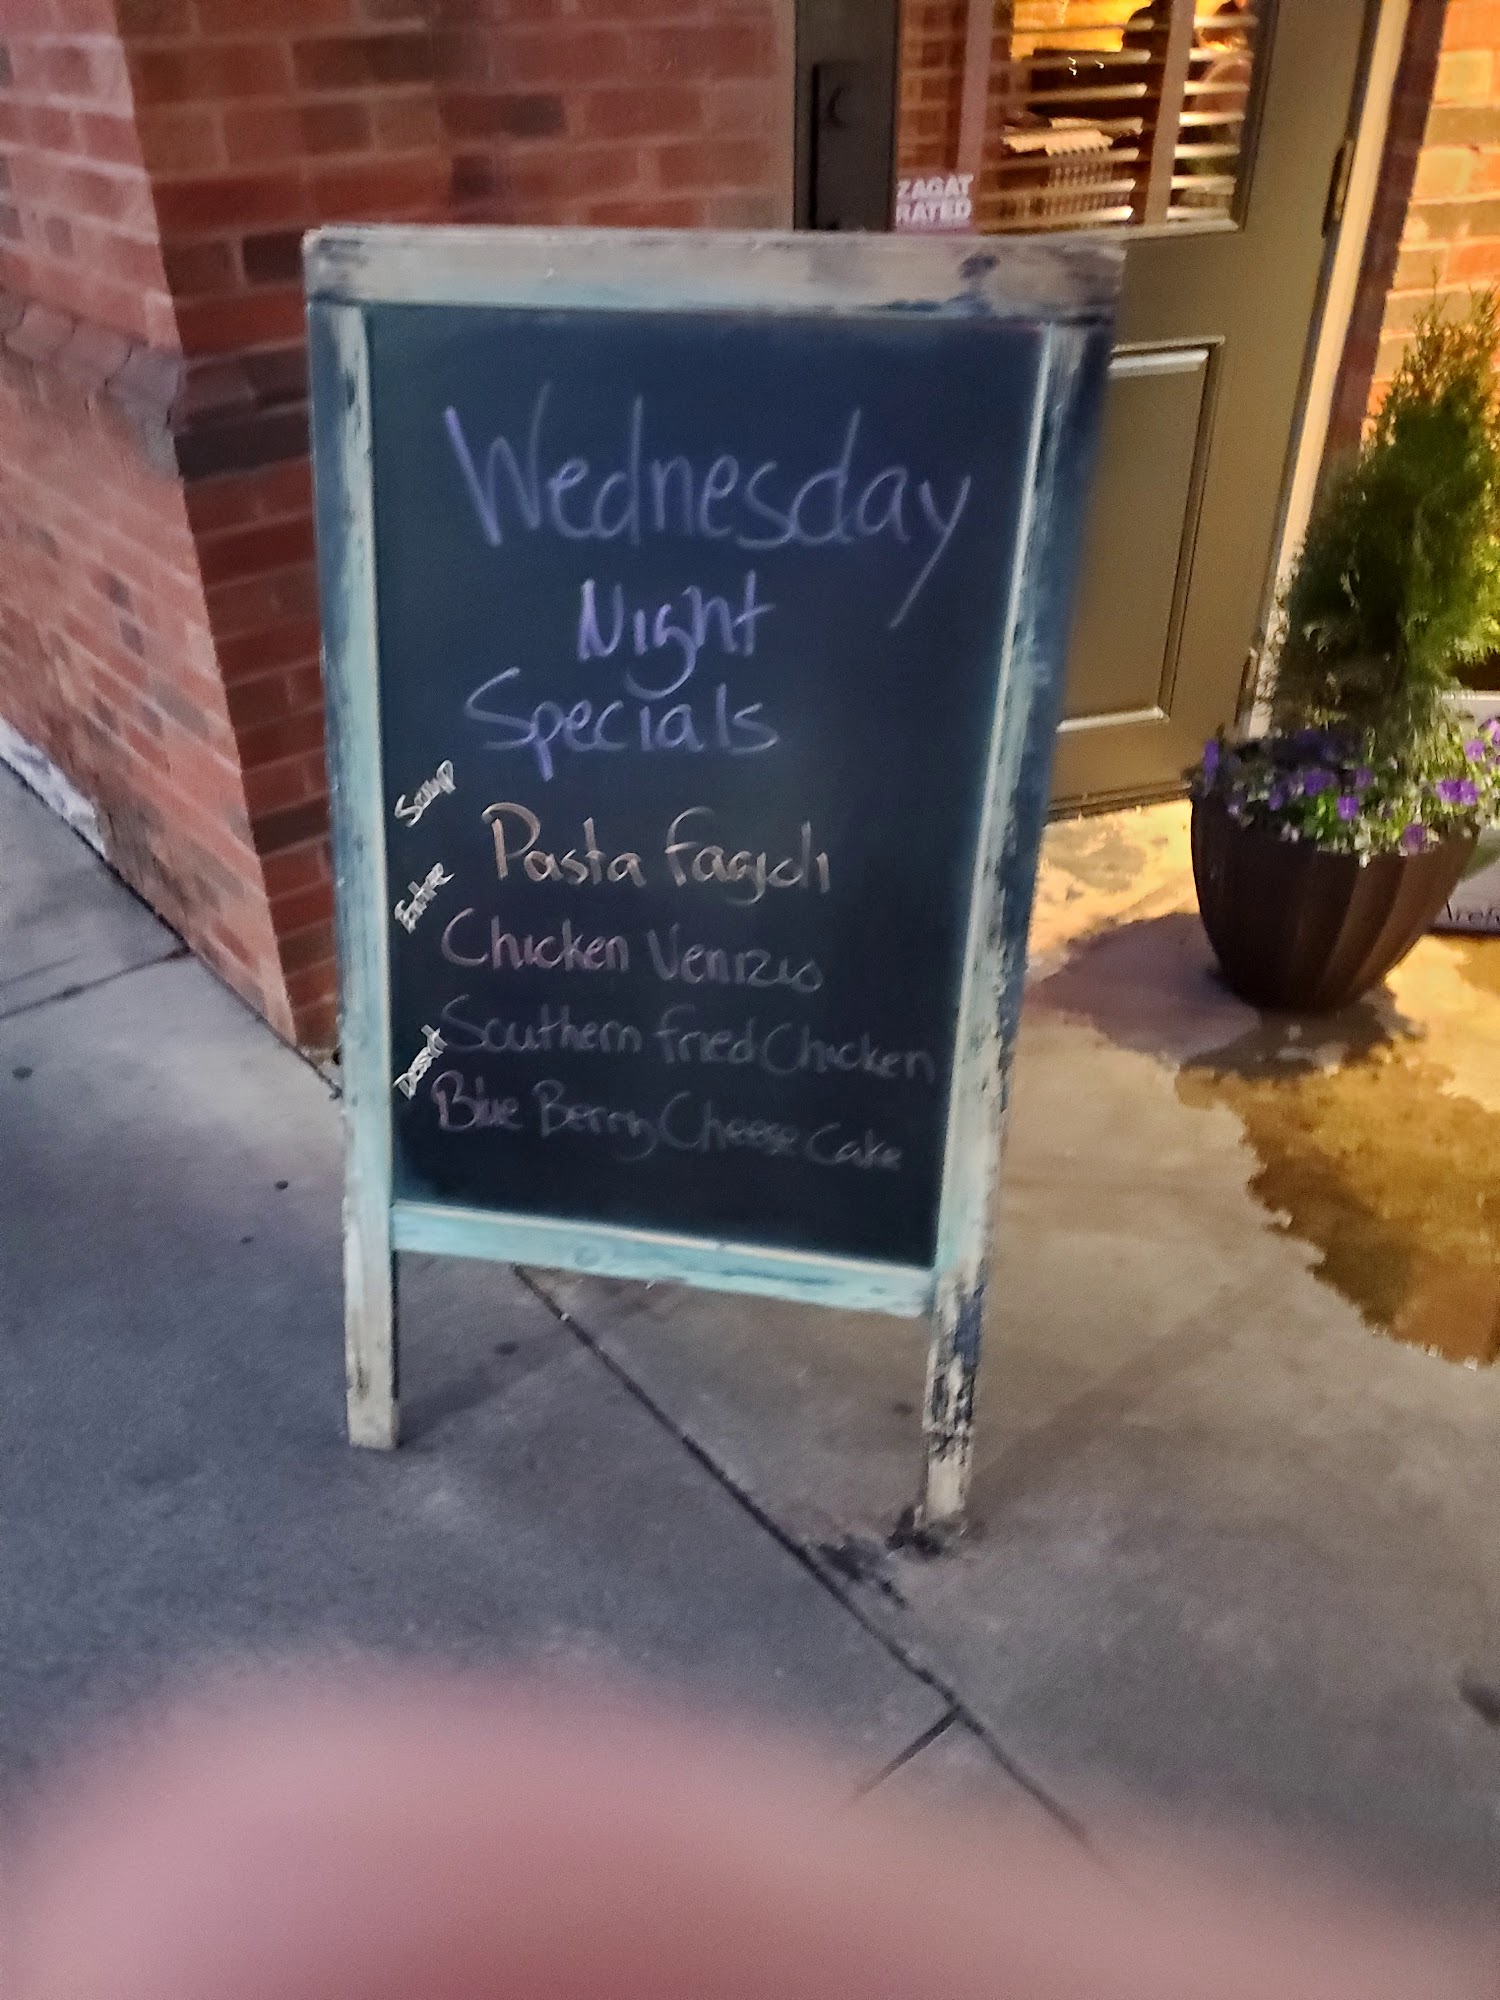 ZAGAT
RATED
Wednesday
Night
Specials
Soup
Pasta Fagioli
Entree
Chicken Venizio
Southern Fried Chicken
Dessert
Blue Berry Cheese Cake